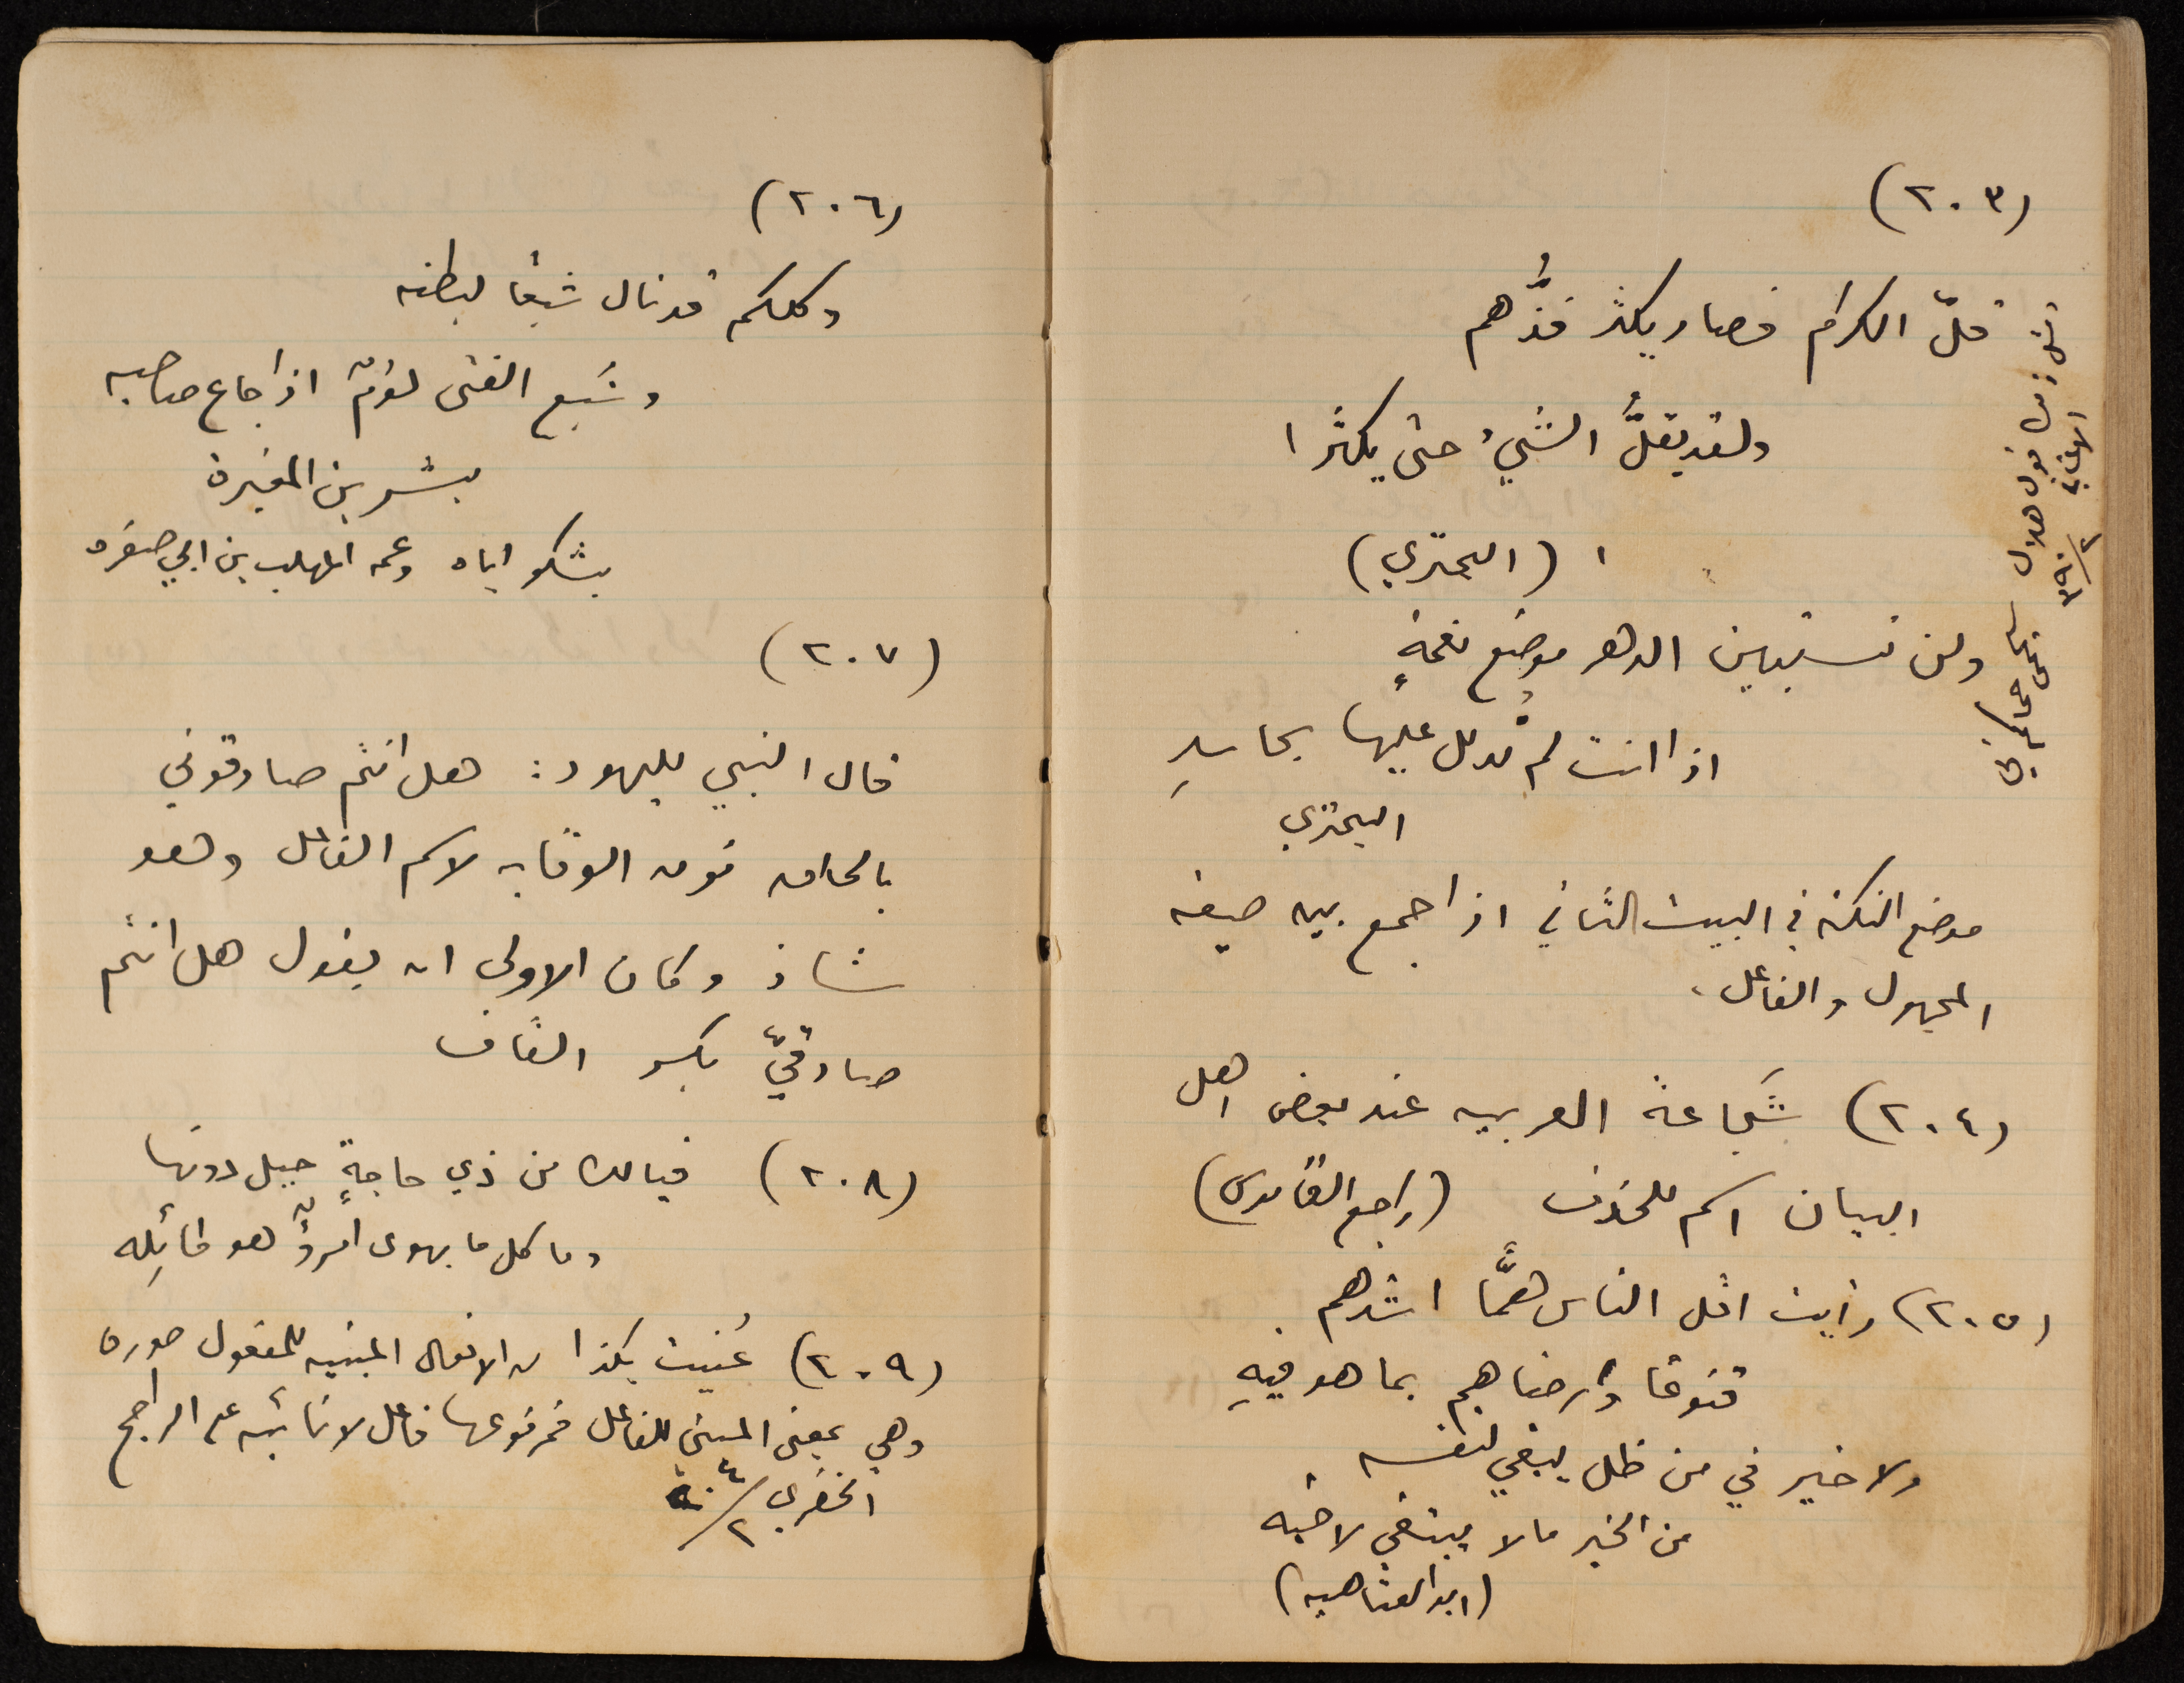 (٢٠٣)
قلّ الكرام فصار يكثر فذُّهم
ولقد يقلُّ الشيءُ حتى يكثرا
(البحتري)
ولن تستبين الدهر موضع نعمةٍ
اذا انت لم تُدلل عليها بحاسدِ
البحتري
موضع النكتة في البيت الثاني اذا جمع بين صيغة
المجهول والفاعل.
(٢٠٤) شَجاعة العربيه عند بعض اهل
البيان اسم للحذف (راجع القاموس)
(٢٠٥) رأيت اقل الناس همًّا اشدهم
قنوعًا وأرضاهم بما هو فيهِ
ولا خير في من ظل يبغي لنفسه
من الخير مالا يبتغي لاخيه
(ابو العتاهيه)
قول هلال
الاغاني
(٢٠٦)
وكلكم قد نال شبعًا لبطنه
وشَبع الفتى لؤمٌ اذا جاع صاحبه
بشر بن المغيرة
يشكو اباه وعمه المهلب بن ابي صفره
(٢٠٧)
قال النبي لليهود: هل انتم صادقوني
بالحاق نون الوقايه لاسم الفاعل وهو
شاذ وكان الاولى ان يقول هل انتم
صادقيّ بكسر القاف
(٢٠٨) فيالك من ذي حاجةٍ حيل دونها
وما كل ما يهوى امرؤٌ هو نائِله
(٢٠٩) عُنيت بكذا من الافعال المبنيه للمفعول صورة
وهي بمعنى المبني للفاعل فمرفوعها فاعل لا نائبه على الراجح
الخضري